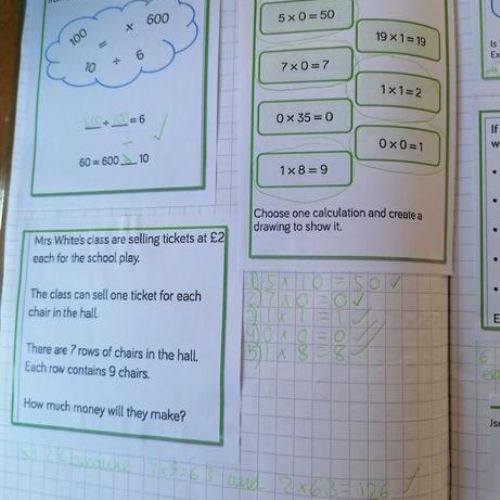 600
100
×
=
10 ÷ 6
600 ÷ 100 = 6
60 = 600 ÷ 10
5 x 0 = 50
19 x 1 = 19
7 x 0 = 7
1 x 1 = 2
0 x 35 = 0
0 x 0 = 1
1 x 8 = 9
Choose one calculation and create a
drawing to show it.
Mrs White's class are selling tickets at £2
each for the school play.
The class can sell one ticket for each
chair in the hall.
There are 7 rows of chairs in the hall.
Each row contains 9 chairs.
How much money will they make?
1) 5 x 10 = 50
2) 7 x 0 = 0
3) 1 x 1 = 1
4) 0 x 0 = 0
5) 1 x 8 = 8
because 7x9=63 and 2x63=126
Is
If
w